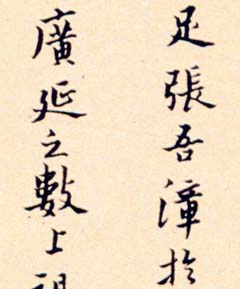 足張吾漳於
廣延之數上